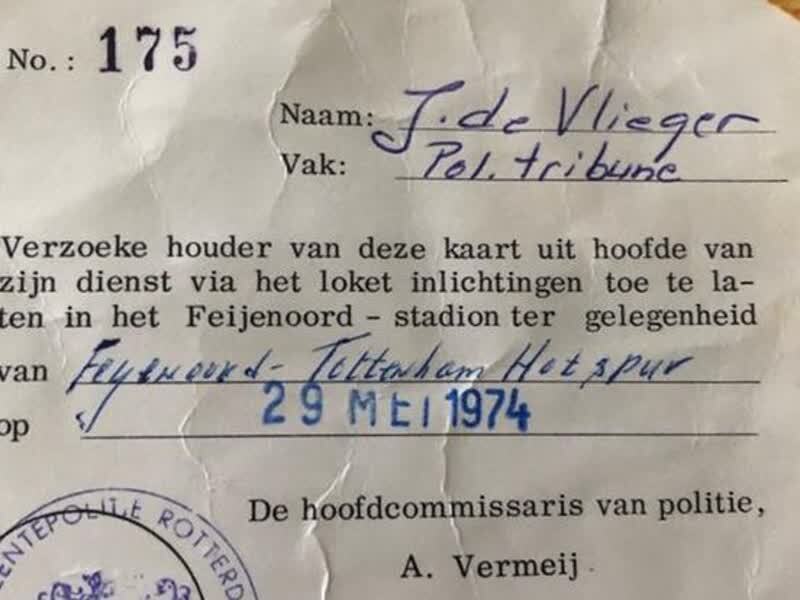 No.: 175
Naam: J. de Vlieger
Vak: Pol. tribune
Verzoeke houder van deze kaart uit hoofde van
zijn dienst via het loket inlichtingen toe te la-
ten in het Feijenoord - stadion ter gelegenheid
van Feyenoord - Tottenham Hotspur
op 29 MEI 1974
De hoofdcommissaris van politie,
A. Vermeij
EENTEPOLITIE ROTTERD